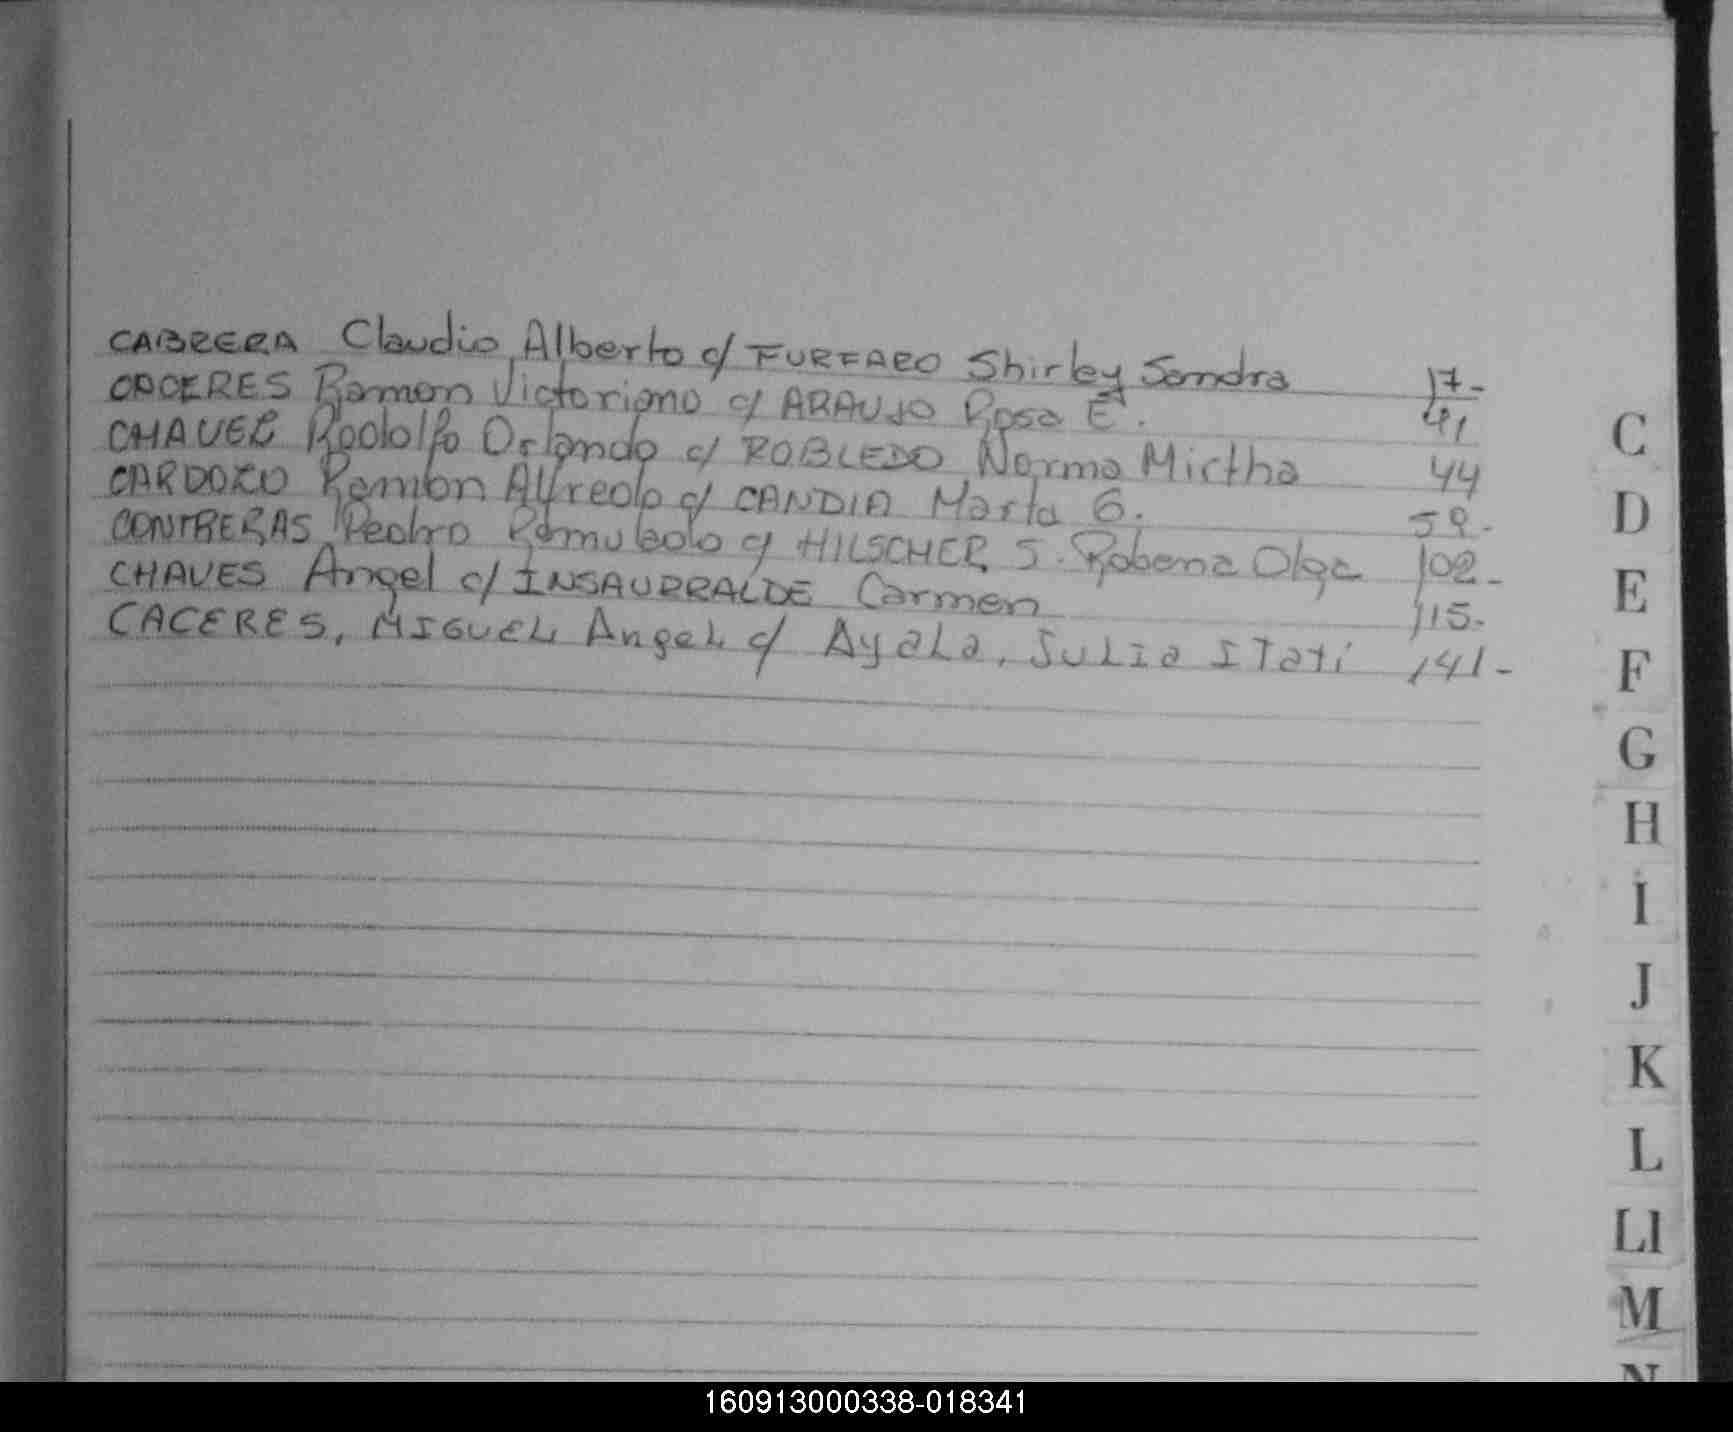 CABRERA Claudio Alberto c/ FURFARO Shirley Sandra 17-
CACERES Ramon Victoriano c/ ARAUJO Rosa E. 41
CHAVEZ Rodolfo Orlando c/ ROBLEDO Norma Mirtha 44
CARDOZO Ramon Alfredo c/ CANDIA Marta G. 59-
CONTRERAS Pedro c/ HILSCHER S. Olga 102-
CHAVES Angel c/ INSAURRALDE Carmen 115-
CACERES, MIGUEL Angel c/ Ayala, Julia Itati 141-
C
D
E
F
G
H
I
J
K
L
Ll
M
N
160913000338-018341